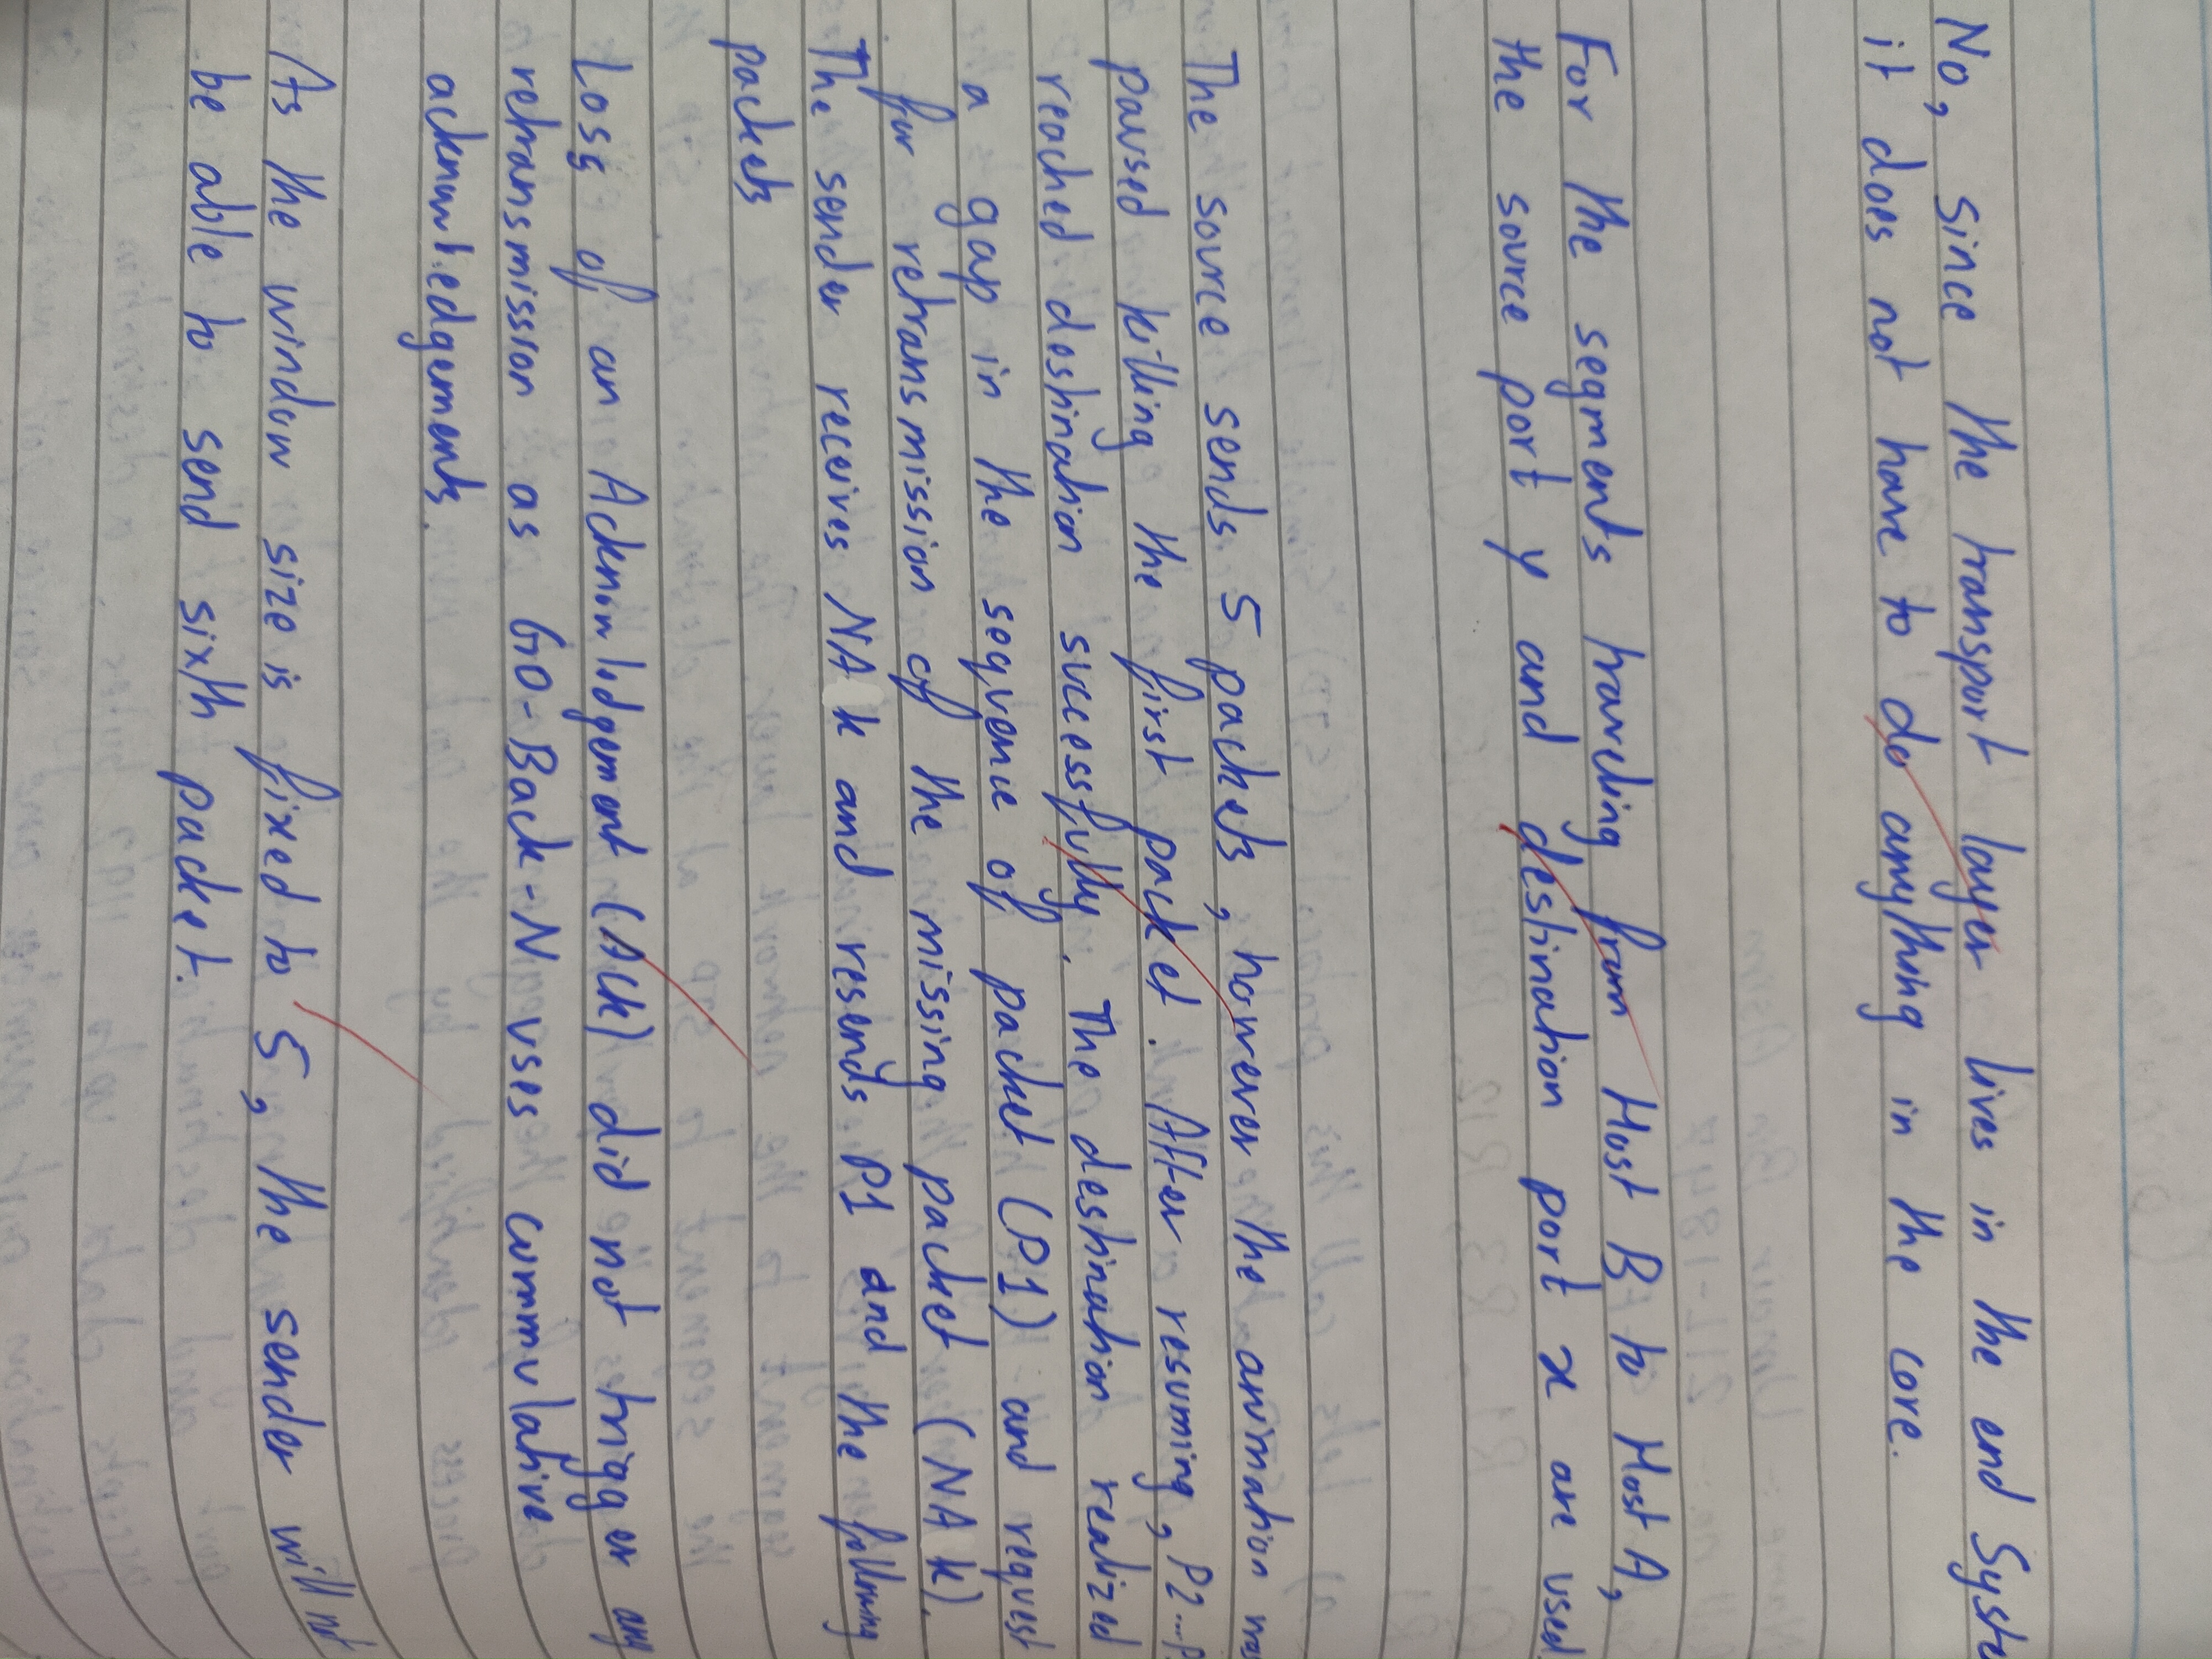 No, since the transport layer lives in the end Syste
it does not have to do anything in the core.
For the segments traveling from Host B to Host A,
the source port y and destination port x are used.
The source sends 5 packets, however the animation was
paused killing the first packet. After resuming, P2...P
reached destination successfully. The destination realized
a gap in the sequence of packet (P1) and request
for retransmission of the missing packet (NAk).
The sender receives NAk and resends P1 and the following
packets
Loss of an Acknowledgement (Ack) did not trigger any
retransmission as GO-Back-N uses cummulative
acknowledgements.
As the window size is fixed to 5, the sender will not
be able to send sixth packet.